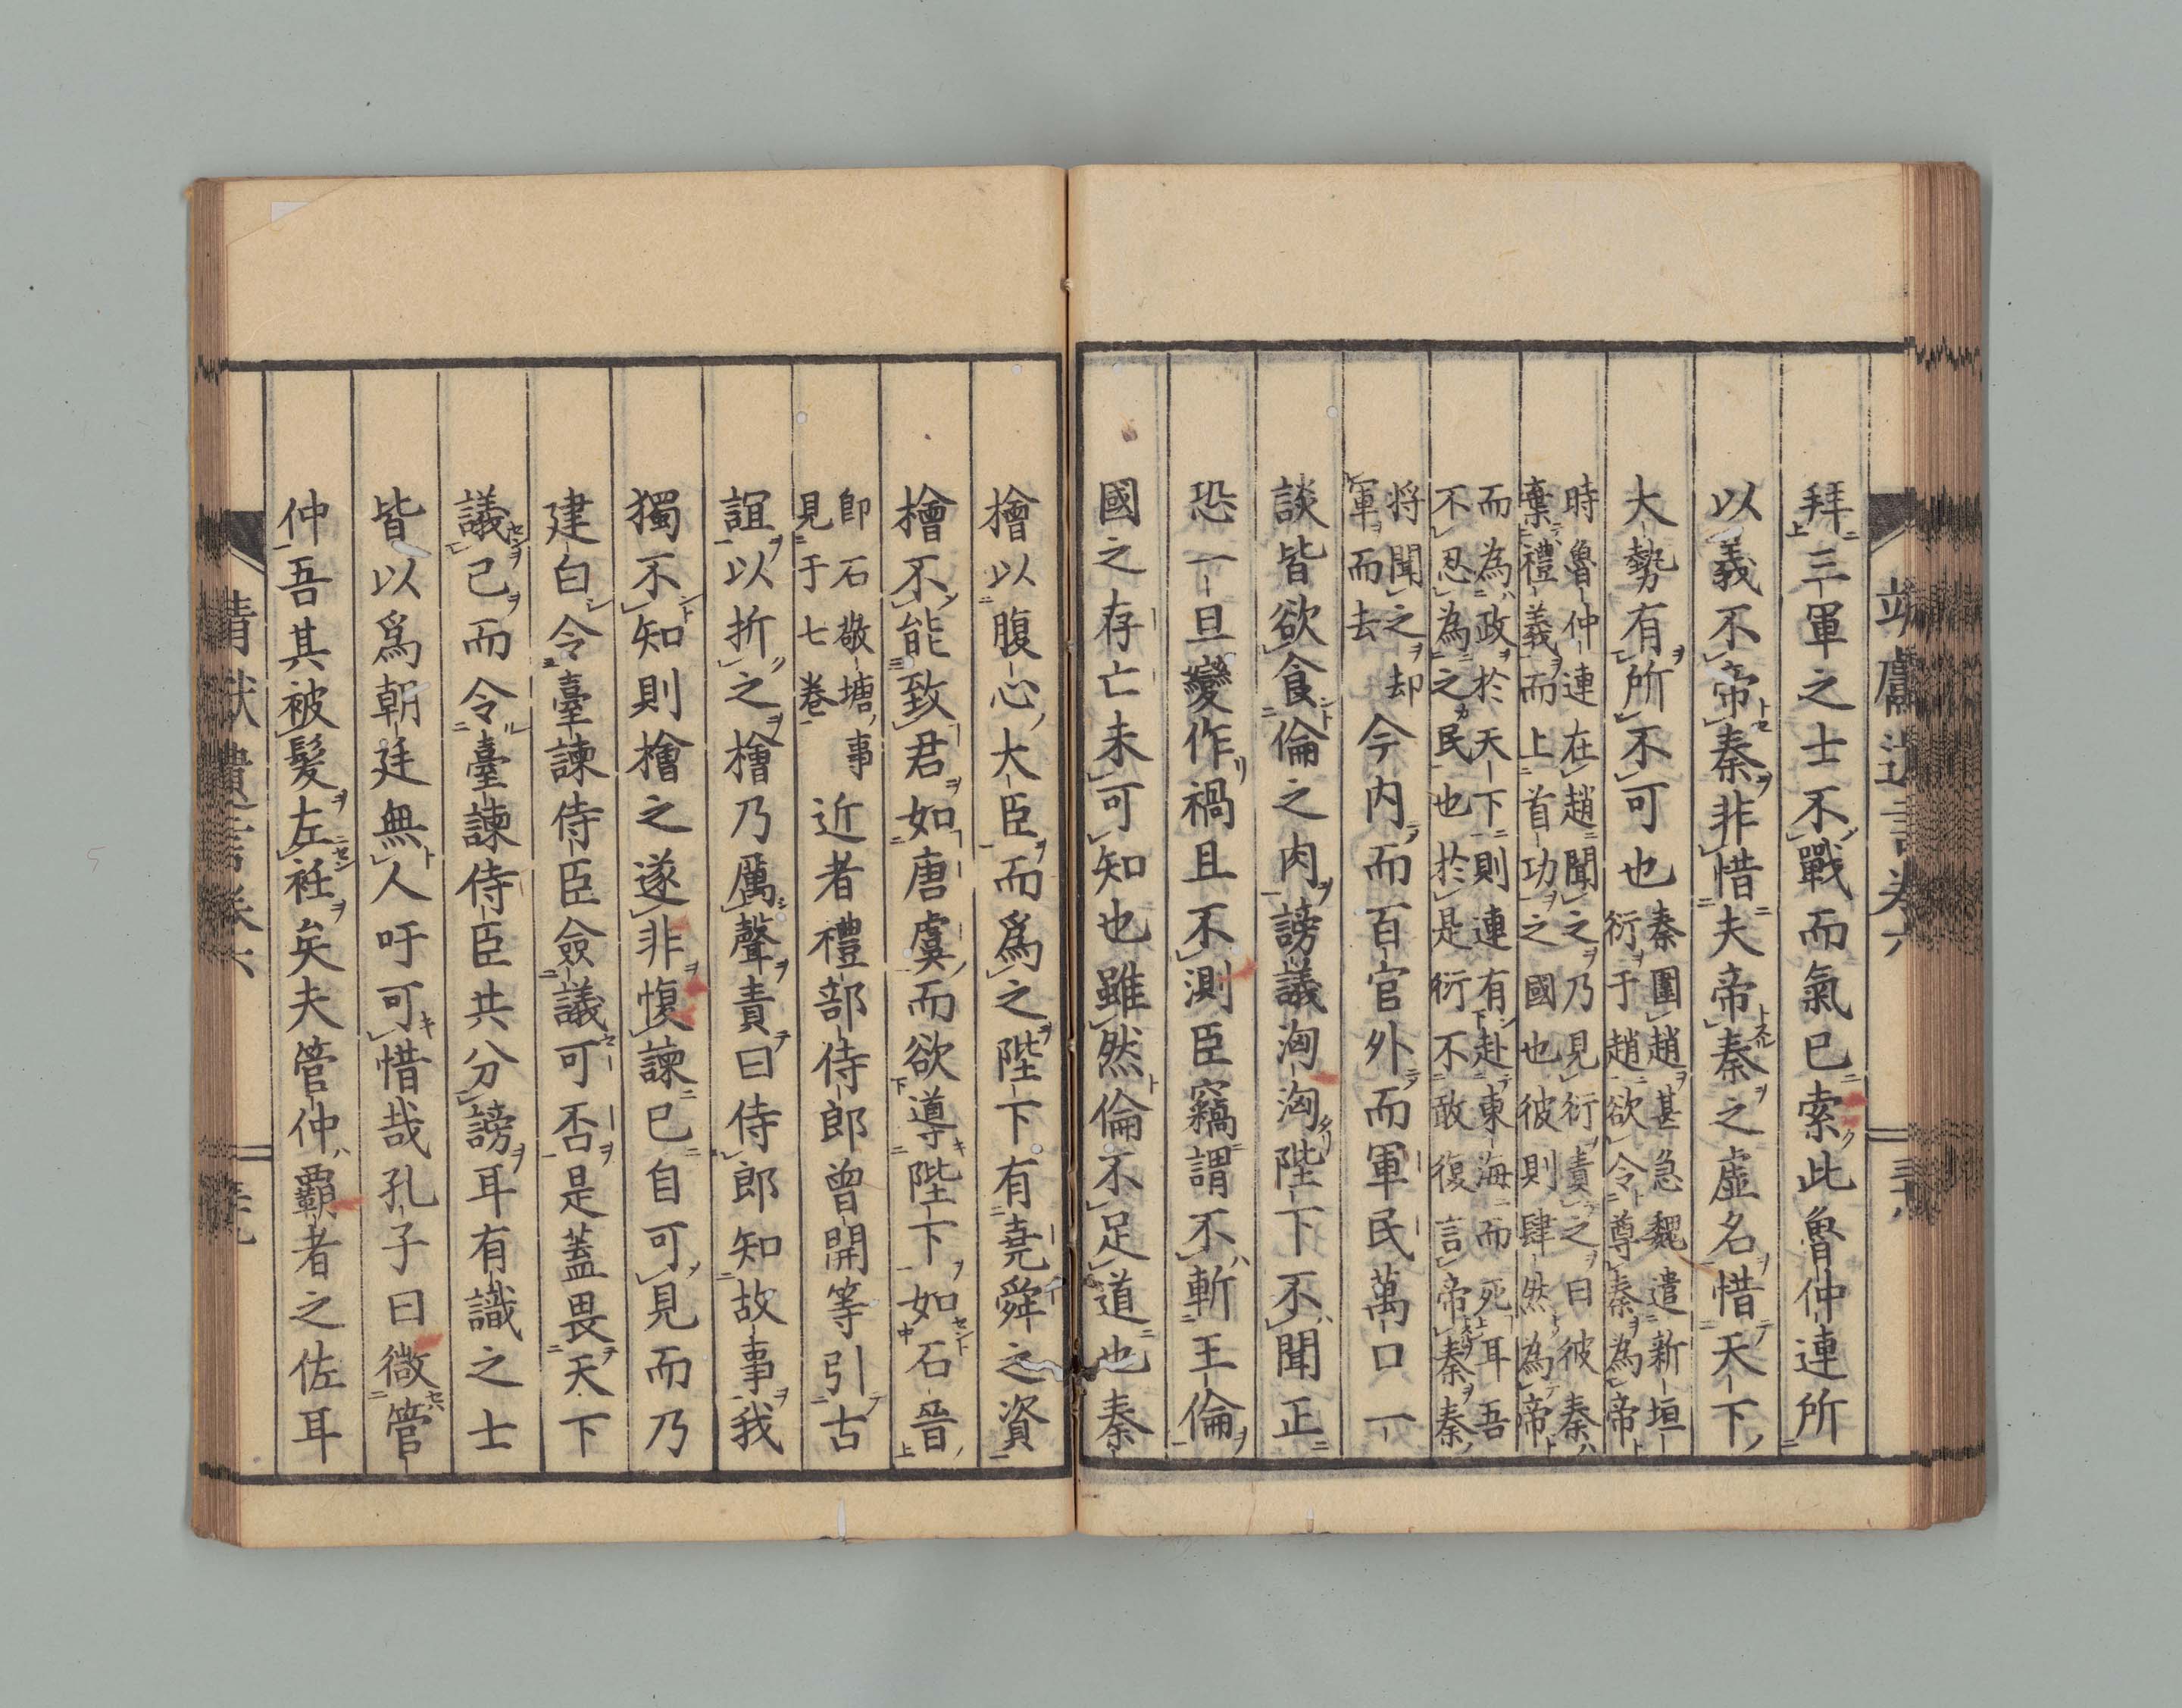 拜三軍之士不戰而氣已索此魯仲連所
以義不帝秦非惜夫帝秦之虛名惜天下
大勢有所不可也秦圍趙甚急魏遣新垣
衍于趙欲令尊秦為帝
時魯仲連在趙聞之乃見衍責之曰彼秦
棄禮義而上首功之國也彼則肆然為帝
而為政於天下則連有赴東海而死耳吾
不忍為之民也於是衍不敢復言帝秦秦
將聞之却
軍而去
今內而百官外而軍民萬口一
談皆欲食倫之肉謗議洶洶陛下不聞正
恐一旦變作禍且不測臣竊謂不斬王倫
國之存亡未可知也雖然倫不足道也秦
檜以腹心大臣而爲之陛下有堯舜之資
檜不能致君如唐虞而欲導陛下如石晉
卽石敬塘事
見于七卷
近者禮部侍郎曾開等引古
誼以折之檜乃厲聲責曰侍郎知故事我
獨不知則檜之遂非愎諫已自可見而乃
建白令臺諫侍臣僉議可否是蓋畏天下
議己而令臺諫侍臣共分謗耳有識之士
皆以爲朝廷無人吁可惜哉孔子曰微管
仲吾其被髮左衽矣夫管仲覇者之佐耳